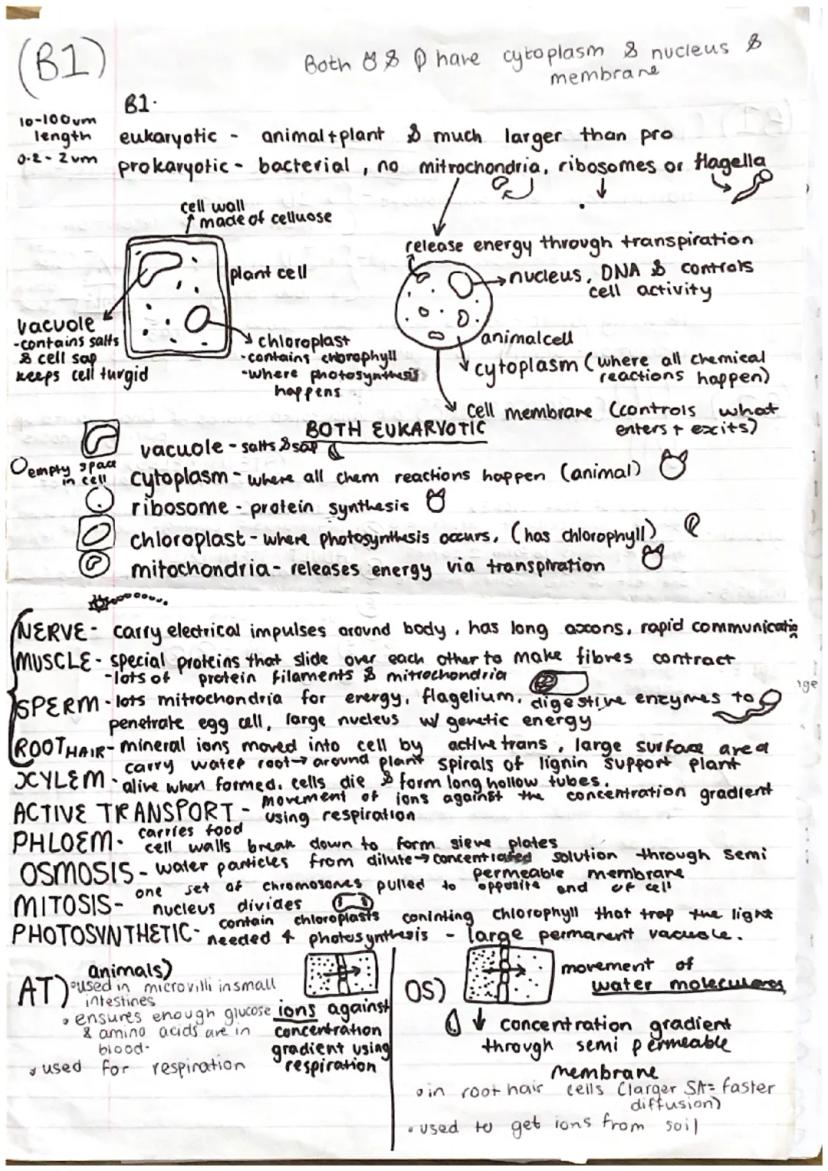 (B1)
Both & have cytoplasm & nucleus &
membrane
B1.
10-100um
length
eukaryotic - animal+plant & much larger than pro
0.2 - 2um
prokaryotic - bacterial, no mitrochondria, ribosomes or flagella
cell wall
made of celluose
plant cell
vacuole
-contains salts
& cell sap
keeps cell turgid
chloroplast
-contains chlorophyll
-where photosynthesis
happens
release energy through transpiration
nucleus, DNA & controls
cell activity
animal cell
cytoplasm (where all chemical
reactions happen)
cell membrane (controls what
enters + exits)
BOTH EUKARYOTIC
vacuole - salts & sap
empty space
in cell
cytoplasm - where all chem reactions happen (animal)
ribosome - protein synthesis
chloroplast - where photosynthesis occurs, (has chlorophyll)
mitochondria - releases energy via transpiration
NERVE - carry electrical impulses around body, has long axons, rapid communicatio
MUSCLE - special proteins that slide over each other to make fibres contract
-lots of protein filaments & mitrochondria
SPERM - lots mitrochondria for energy, flagelium, digestive enzymes to
penetrate egg cell, large nucleus w/ genetic energy
ROOT HAIR - mineral ions moved into cell by active trans, large surface area
carry water root→ around plant spirals of lignin support plant
XYLEM - alive when formed. cells die & form long hollow tubes.
ACTIVE TRANSPORT - movement of ions against the concentration gradient
using respiration
PHLOEM - carries food
cell walls break down to form sieve plates
OSMOSIS - water particles from dilute→concentrated solution through semi
permeable membrane
MITOSIS - one set of chromosones pulled to opposite end of cell
nucleus divides
PHOTOSYNTHETIC - contain chloroplasts chlorophyll that trap the light
needed 4 photosynthesis - large permanent vacuole.
AT)
animals)
•used in microvilli in small
intestines
• ensures enough glucose
& amino acids are in
blood.
• used for respiration
ions against
concentration
gradient using
respiration
OS)
movement of
water moleculeres
↓ concentration gradient
through semi permeable
membrane
• in root hair cells (larger SA = faster
diffusion)
• used to get ions from soil